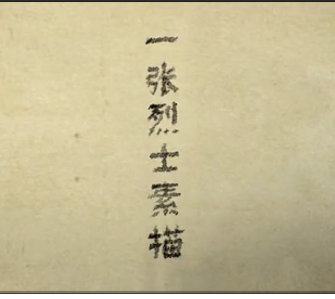 一张烈士素描